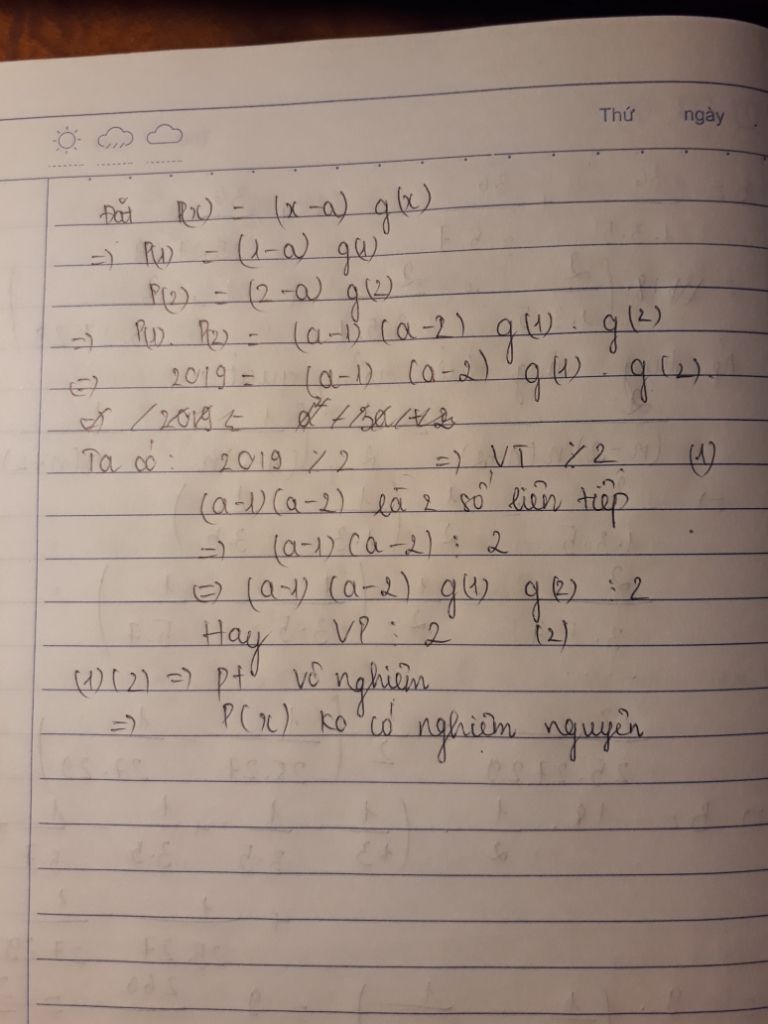 Thứ ngày
Đặt P(x) = (x-a) g(x)
=> P(1) = (1-a) g(1)
P(2) = (2-a) g(2)
=> P(1). P(2) = (a-1) (a-2) g(1) . g(2)
<=> 2019 = (a-1) (a-2) g(1) . g(2).
Ta có: 2019 ⋮̸ 2 => VT ⋮̸ 2 (1)
(a-1)(a-2) là 2 số liên tiếp
=> (a-1)(a-2) ⋮ 2
<=> (a-1) (a-2) g(1) g(2) ⋮ 2
Hay VP ⋮ 2 (2)
(1)(2) => pt vô nghiệm
=> P(x) ko có nghiệm nguyên